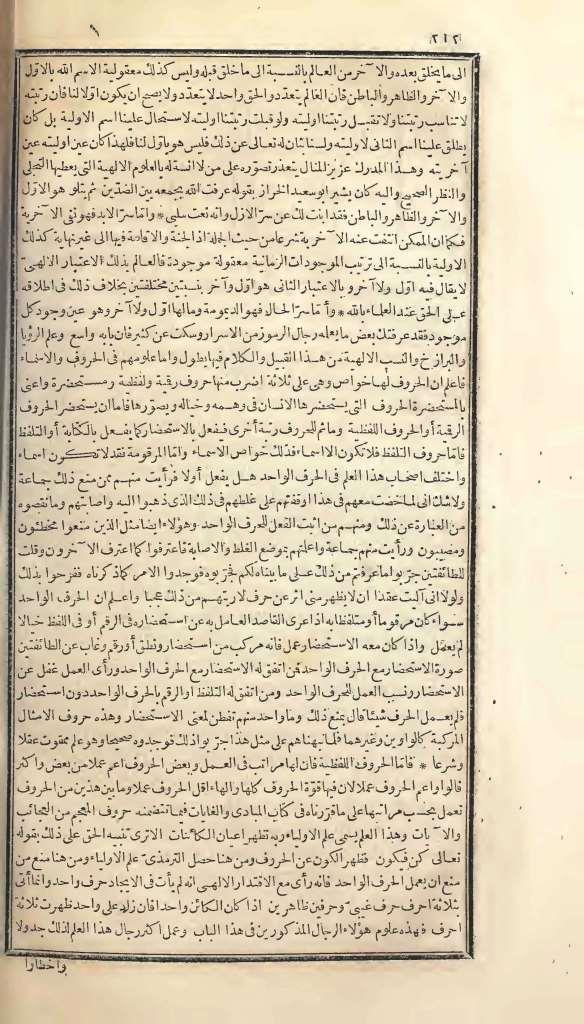 ٢١٢
الى ما يخلق بعده والآخر من العالم بالنسبة الى ما خلق قبله وليس كذلك معقولية الاسم الله بالاول
والآخر والظاهر والباطن فان العالم يتعدد والحق واحد لا يتعدد ولا يصح ان يكون اولا لنا فان رتبته
لا تناسب رتبتنا ولا تقبل رتبتنا اوليته ولو قبلت رتبتنا اوليته لاستحال علينا اسم الاولية بل كان
يطلق علينا اسم الثانى لاوليته ولسنا بثان له تعالى عن ذلك فليس هو باول لنا فلهذا كان عين اوليته عين
آخريته وهذا المدرك عزيز المنال يتعذر تصوره على من لا انسة له بالعلوم الالهية التى يعطيها التجلى
والنظر الصحيح واليه كان يشير ابو سعيد الخراز بقوله عرفت الله بجمعه بين الضدين ثم يتلو هو الاول
والآخر والظاهر والباطن فقد ابنت لك عن سر الازل وانه نعت سلبى * واما سر الابد فهو نفى الآخرية
فكما ان الممكن انتفت عنه الآخرية شرعا من حيث الجملة اذ الجنة والاقامة فيها الى غير نهاية كذلك
الاولية بالنسبة الى ترتيب الموجودات الزمانية معقولة موجودة فالعالم بذلك الاعتبار الالهى
لا يقال فيه اول ولا آخر وبالاعتبار الثانى هو اول وآخر بنسبتين مختلفتين بخلاف ذلك فى اطلاقه
على الحق عند العلماء بالله * وأما سر الحال فهو الديمومة وما لها اول ولا آخر وهو عين وجود كل
موجود فقد عرفتك بعض ما يعلمه رجال الرموز من الاسرار وسكت عن كثير فان بابه واسع وعلم الرؤيا
والبرازخ والنسب الالهية من هذا القبيل والكلام فيها يطول واما علومهم فى الحروف والاسماء
فاعلم ان الحروف لها خواص وهى على ثلاثة اضرب منها حروف رقمية ولفظية ومستحضرة واعنى
بالمستحضرة الحروف التى يستحضرها الانسان فى وهمه وخياله ويصورها فاما ان يستحضر الحروف
الرقمية أو الحروف اللفظية وما ثم للحروف رتبة أخرى فيفعل بالاستحضار كما يفعل بالكتابة أو التلفظ
فاما حروف التلفظ فلا تكون الا اسماء فذلك خواص الاسماء واما المرقومة فقد لا تكون اسماء
واختلف اصحاب هذا العلم فى الحرف الواحد هل يفعل أولا فرأيت منهم من منع ذلك جماعة
ولا شك انى لما خضت معهم فى هذا اوقفتهم على غلطهم فى ذلك الذى ذهبوا اليه واصابتهم وما نقصهم
من العبارة عن ذلك ومنهم من اثبت الفعل للحرف الواحد وهؤلاء ايضا مثل الذين منعوا مخطئون
ومصيبون ورأيت منهم جماعة واعلمتهم بموضع الغلط والاصابة فاعترفوا كما اعترف الآخرون وقلت
للطائفتين جربوا ما عرفتم من ذلك على ما بيناه لكم فجربوه فوجدوا الامر كما ذكرناه ففرحوا بذلك
ولولا انى آليت عقدا ان لا يظهر منى اثر عن حرف لاريتهم من ذلك عجبا واعلم ان الحرف الواحد
سواء كان مرقوما أو متلفظا به اذا عرى القاصد العامل به عن استحضاره فى الرقم أو فى اللفظ خيالا
لم يعمل واذا كان معه الاستحضار عمل فانه مركب من استحضار ونطق أو رقم وغاب عن الطائفتين
صورة الاستحضار مع الحرف الواحد فمن اتفق له الاستحضار مع الحرف الواحد ورأى العمل غفل عن
الاستحضار ونسب العمل للحرف الواحد ومن اتفق له التلفظ أو الرقم بالحرف الواحد دون استحضار
فلم يعمل الحرف شيئا قال بمنع ذلك وما واحد منهم تفطن لمعنى الاستحضار وهذه حروف الامثال
المركبة كالواوين وغيرهما فلما نبهناهم على مثل هذا جربوا ذلك فوجدوه صحيحا وهو علم ممقوت عقلا
وشرعا * فاما الحروف اللفظية فان لها مراتب فى العمل وبعض الحروف اعم عملا من بعض واكثر
فالواو اعم الحروف عملا لان فيها قوة الحروف كلها والهاء اقل الحروف عملا وما بين هذين من الحروف
تعمل بحسب مراتبها على ما قررناه فى كتاب المبادى والغايات فيما تتضمنه حروف المعجم من العجائب
والآيات وهذا العلم يسمى علم الاولياء وبه تظهر اعيان الكائنات الا ترى تنبيه الحق على ذلك بقوله
تعالى كن فيكون فظهر الكون عن الحروف ومن هنا جعله الترمذى علم الاولياء ومن هنا منع من
منع ان يعمل الحرف الواحد فانه رأى مع الاقتدار الالهى انه لم يأت فى الايجاد حرف واحد وانما أتى
بثلاثة احرف حرف غيبى وحرفين ظاهرين اذا كان الكائن واحدا فان زاد على واحد ظهرت ثلاثة
احرف فهذه علوم هؤلاء الرجال المذكورين فى هذا الباب وعمل اكثر رجال هذا العلم لذلك جدولا
واخطأوا